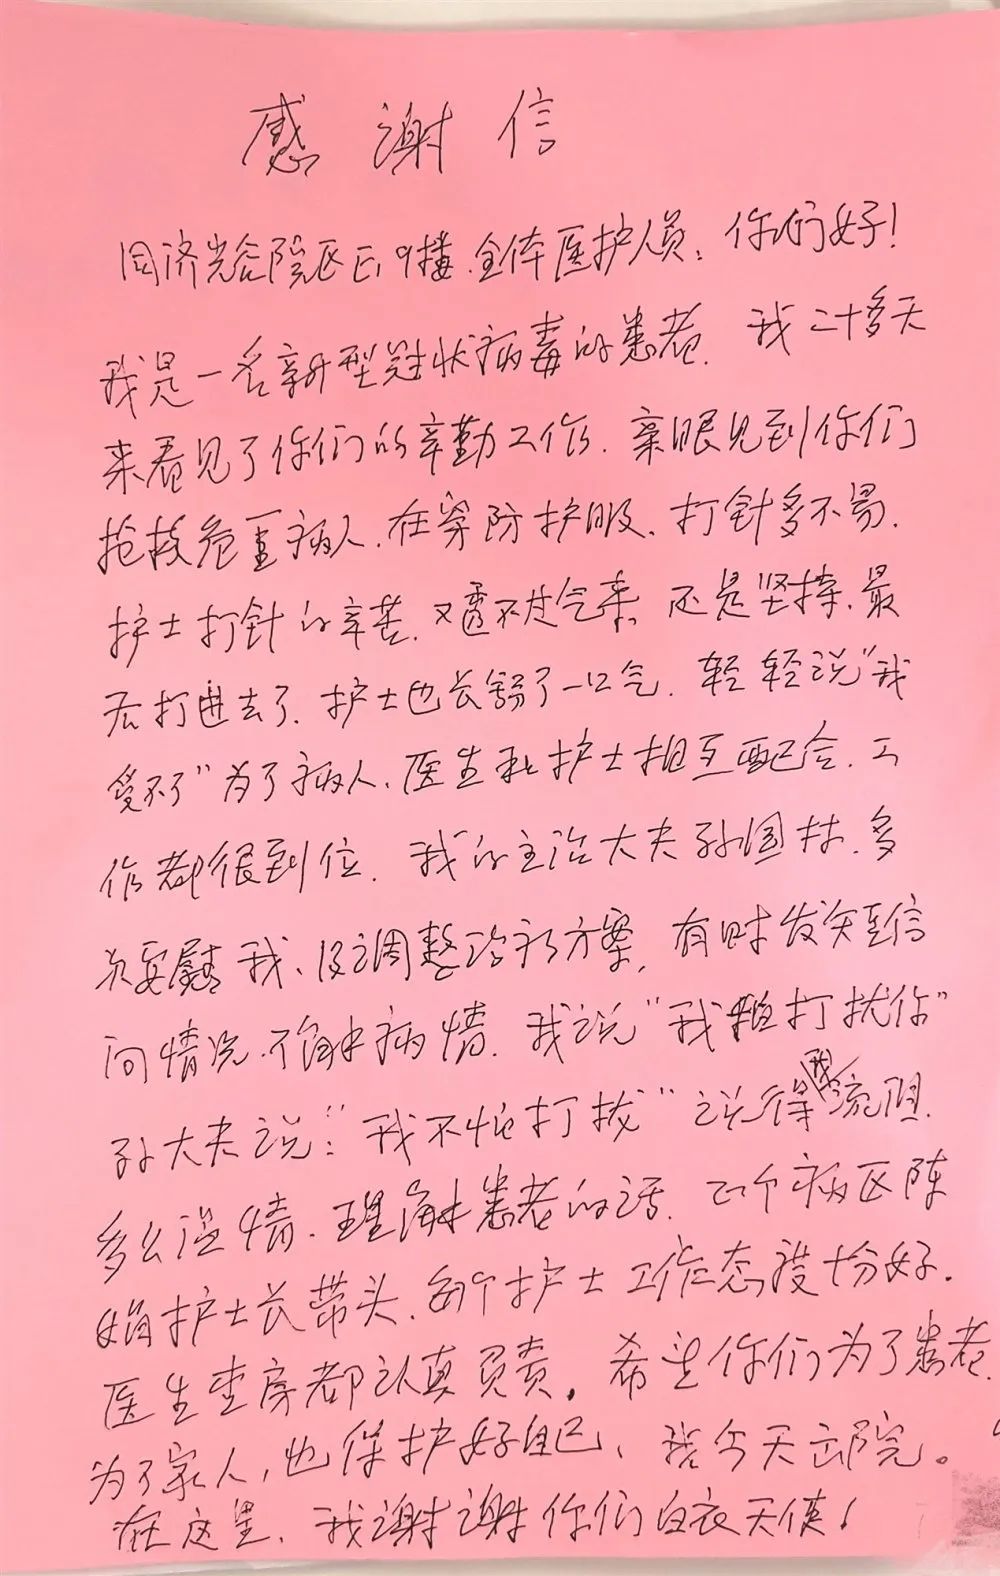 感谢信
同济光谷院区E1-9楼.全体医护人员:你们好!
我是一名新型冠状病毒的患者.我二十多天
来看见了你们的辛勤工作.亲眼见到你们
抢救危重病人.在穿防护服、打针多不易.
护士打针的辛苦.又透不过气来.还是坚持.最
后打进去了.护士也长舒了一口气.轻轻说"我
受不了"为了病人.医生和护士相互配合.工
作都很到位.我的主治大夫孙国林.多
次安慰我、及调整治疗方案,有时发短信
问情况.了解病情.我说"我怕打扰你"
孙大夫说:"我不怕打扰"说得我流泪.
多么温情.理解患者的话.六个病区陈
娟护士长带头.每个护士工作态度十份好.
医生查房都认真负责.希望你们为了患者.
为了家人,也保护好自己、我今天出院。
在这里.我谢谢你们白衣天使!